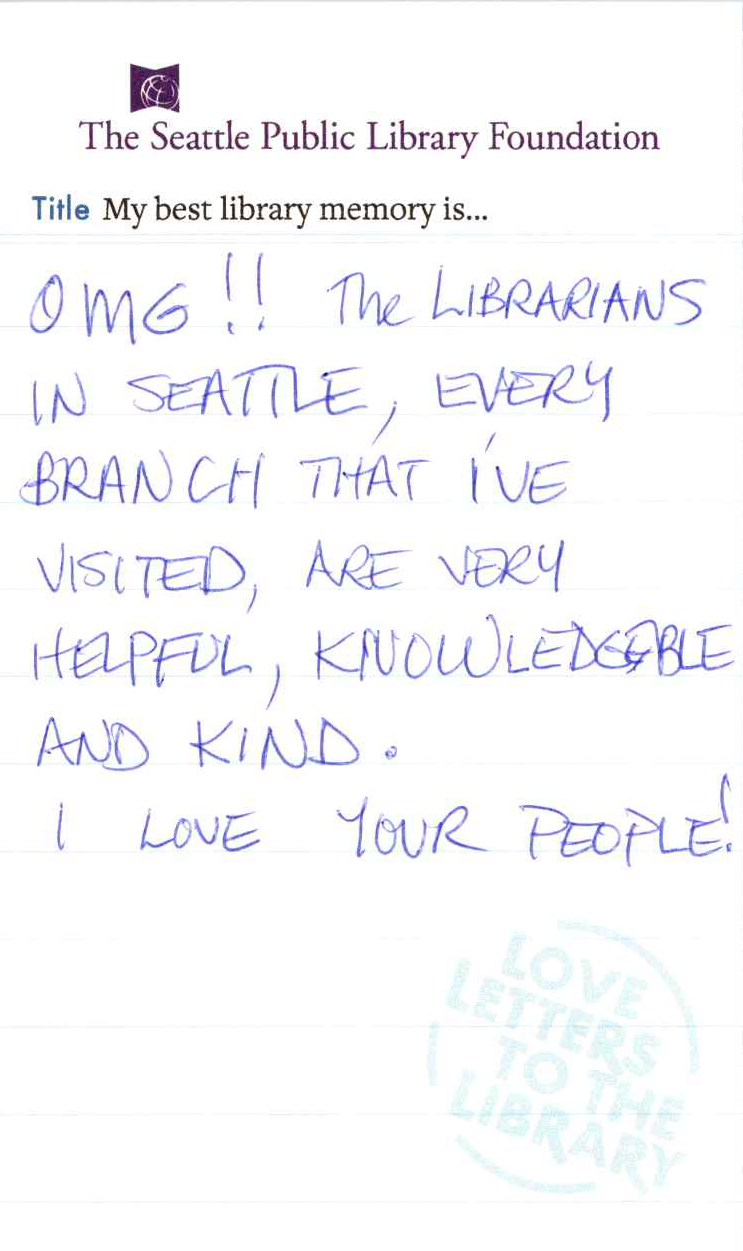 The Seattle Public Library Foundation
Title My best library memory is...
OMG!! The LIBRARIANS
IN SEATTLE, EVERY
BRANCH THAT I'VE
VISITED, ARE VERY
HELPFUL, KNOWLEDGEABLE
AND KIND.
I LOVE YOUR PEOPLE!
LOVE
LETTERS
TO THE
LIBRARY